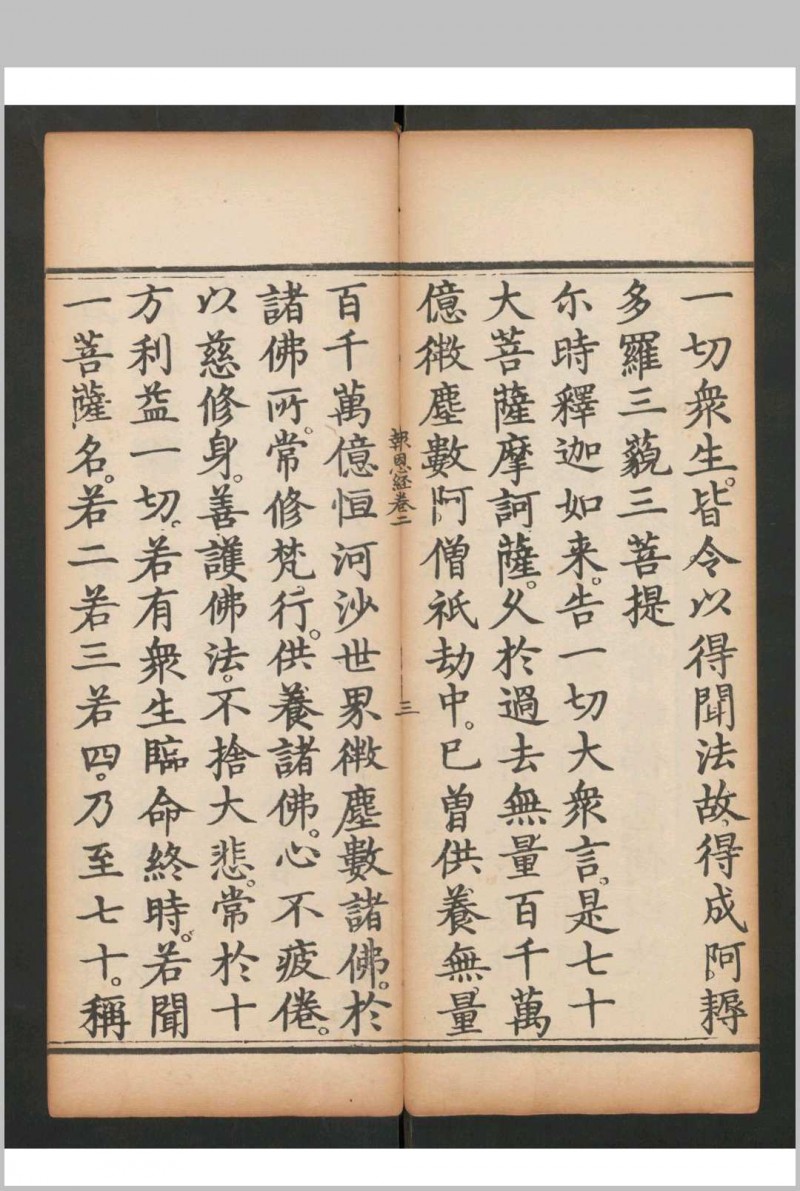 一切衆生。皆令以得聞法故。得成阿。耨
多羅三藐三菩提
尒時釋迦如来。告一切大衆言。是七十
大菩薩摩訶薩。久於過去無量百千萬
億微塵數阿僧祇劫中。已曾供養無量
報恩經卷二
三
百千萬億恒河沙世界微塵數諸佛。於
諸佛所。常修梵行。供養諸佛。心不疲倦。
以慈修身。善護佛法。不捨大悲。常於十
方利益一切。若有衆生臨命終時。若聞
一菩薩名。若二若三若四。乃至七十。稱